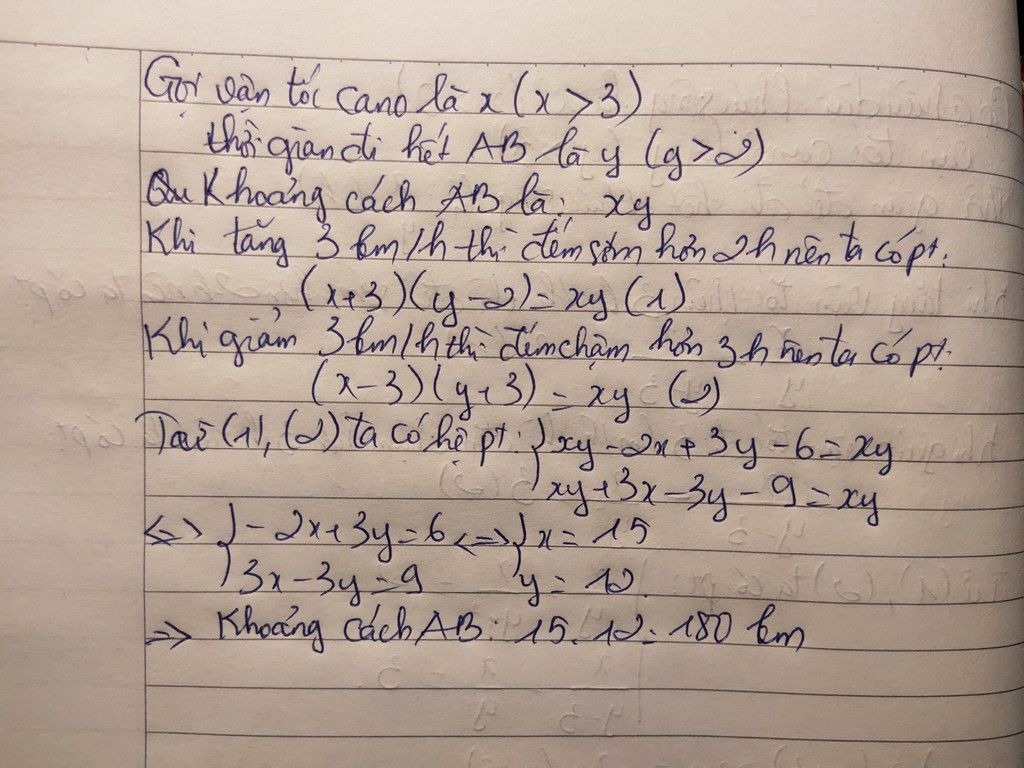 Gọi vận tốc cano là x (x > 3)
thời gian đi hết AB là y (y > 2)
Khoảng cách AB là: xy
Khi tăng 3 km/h thì đến sớm hơn 2h nên ta có pt:
(x+3)(y-2) = xy (1)
Khi giảm 3 km/h thì đến chậm hơn 3h nên ta có pt:
(x-3)(y+3) = xy (2)
Từ (1), (2) ta có hệ pt: { xy - 2x + 3y - 6 = xy
xy + 3x - 3y - 9 = xy
<=> { -2x + 3y = 6 <=> { x = 15
3x - 3y = 9 y = 12
=> Khoảng cách AB: 15.12 = 180 km